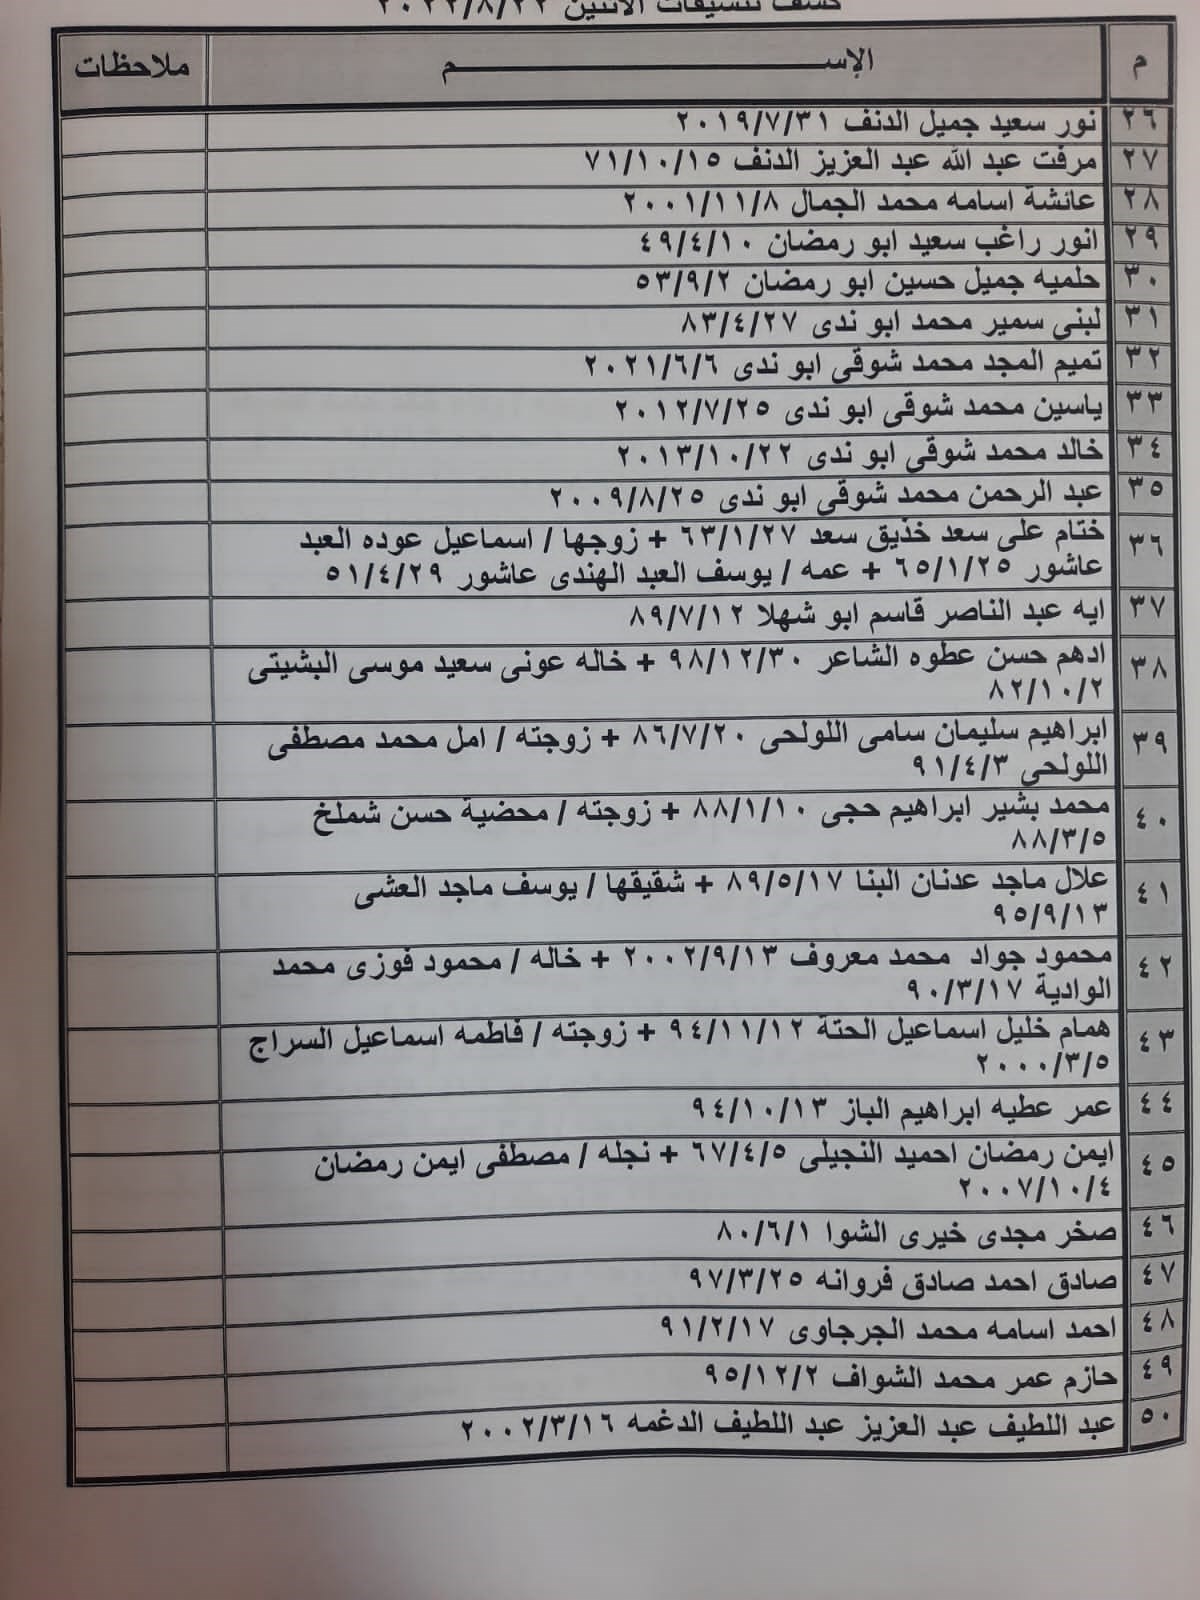 كشف تنسيقات الاثنين ٢٠٢٢/٨/٢٢
م الإســـــــــــم ملاحظات
٢٦ نور سعيد جميل الدنف ٢٠١٩/٧/٣١
٢٧ مرفت عبد الله عبد العزيز الدنف ٧١/١٠/١٥
٢٨ عائشة اسامه محمد الجمال ٢٠٠١/١١/٨
٢٩ انور راغب سعيد ابو رمضان ٤٩/٤/١٠
٣٠ حلميه جميل حسين ابو رمضان ٥٣/٩/٢
٣١ لبنى سمير محمد ابو ندى ٨٣/٤/٢٧
٣٢ تميم المجد محمد شوقى ابو ندى ٢٠٢١/٦/٦
٣٣ ياسين محمد شوقى ابو ندى ٢٠١٢/٧/٢٥
٣٤ خالد محمد شوقى ابو ندى ٢٠١٣/١٠/٢٢
٣٥ عبد الرحمن محمد شوقى ابو ندى ٢٠٠٩/٨/٢٥
٣٦ ختام على سعد خذيق سعد ٦٣/١/٢٧ + زوجها / اسماعيل عوده العبد
عاشور ٦٥/١/٢٥ + عمه / يوسف العبد الهندى عاشور ٥١/٤/٢٩
٣٧ ايه عبد الناصر قاسم ابو شهلا ٨٩/٧/١٢
٣٨ ادهم حسن عطوه الشاعر ٩٨/١٢/٣٠ + خاله عونى سعيد موسى البشيتى
٨٢/١٠/٢
٣٩ ابراهيم سليمان سامى اللولحى ٨٦/٧/٢٠ + زوجته / امل محمد مصطفى
اللولحى ٩١/٤/٣
٤٠ محمد بشير ابراهيم حجى ٨٨/١/١٠ + زوجته / محضية حسن شملخ
٨٨/٣/٥
٤١ علال ماجد عدنان البنا ٨٩/٥/١٧ + شقيقها / يوسف ماجد العشى
٩٥/٩/١٣
٤٢ محمود جواد محمد معروف ٢٠٠٢/٩/١٣ + خاله / محمود فوزى محمد
الوادية ٩٠/٣/١٧
٤٣ همام خليل اسماعيل الحتة ٩٤/١١/١٢ + زوجته / فاطمه اسماعيل السراج
٢٠٠٠/٣/٥
٤٤ عمر عطيه ابراهيم الباز ٩٤/١٠/١٣
٤٥ ايمن رمضان احميد النجيلى ٦٧/٤/٥ + نجله / مصطفى ايمن رمضان
٢٠٠٧/١٠/٤
٤٦ صخر مجدى خيرى الشوا ٨٠/٦/١
٤٧ صادق احمد صادق فروانه ٩٧/٣/٢٥
٤٨ احمد اسامه محمد الجرجاوى ٩١/٢/١٧
٤٩ حازم عمر محمد الشواف ٩٥/١٢/٢
٥٠ عبد اللطيف عبد العزيز عبد اللطيف الدغمه ٢٠٠٢/٣/١٦